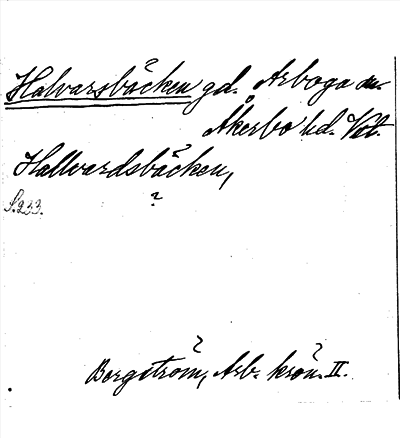 Halvarsbäcken gd. Arboga sn.
Åkerbo hd. Vstl.
Hallvardsbäcken,
?
S. 233.
Bergström, Arb. krön. II.